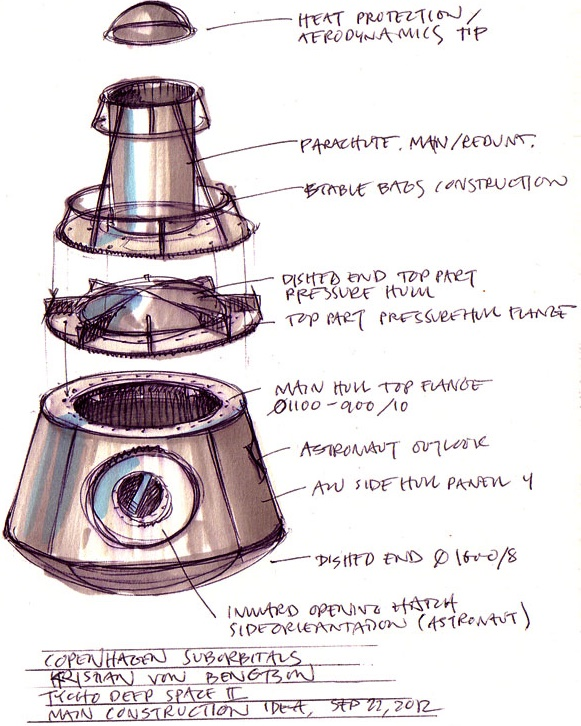 HEAT PROTECTION/
AERODYNAMICS TIP
PARACHUTE. MAIN/REDUNT.
STABLE BAGS CONSTRUCTION
DISHED END TOP PART
PRESSURE HULL
TOP PART PRESSUREHULL FLANGE
MAIN HULL TOP FLANGE
Ø1100-900/10
ASTRONAUT OUTLOOK
SIDE HULL PANEL 4
DISHED END Ø 1600/8
INWARD OPENING HATCH
(ASTRONAUT)
COPENHAGEN SUBORBITALS
KRISTIAN VON BENGTSON
TYCHO DEEP SPACE II
MAIN CONSTRUCTION IDEA, SEP 22, 2012